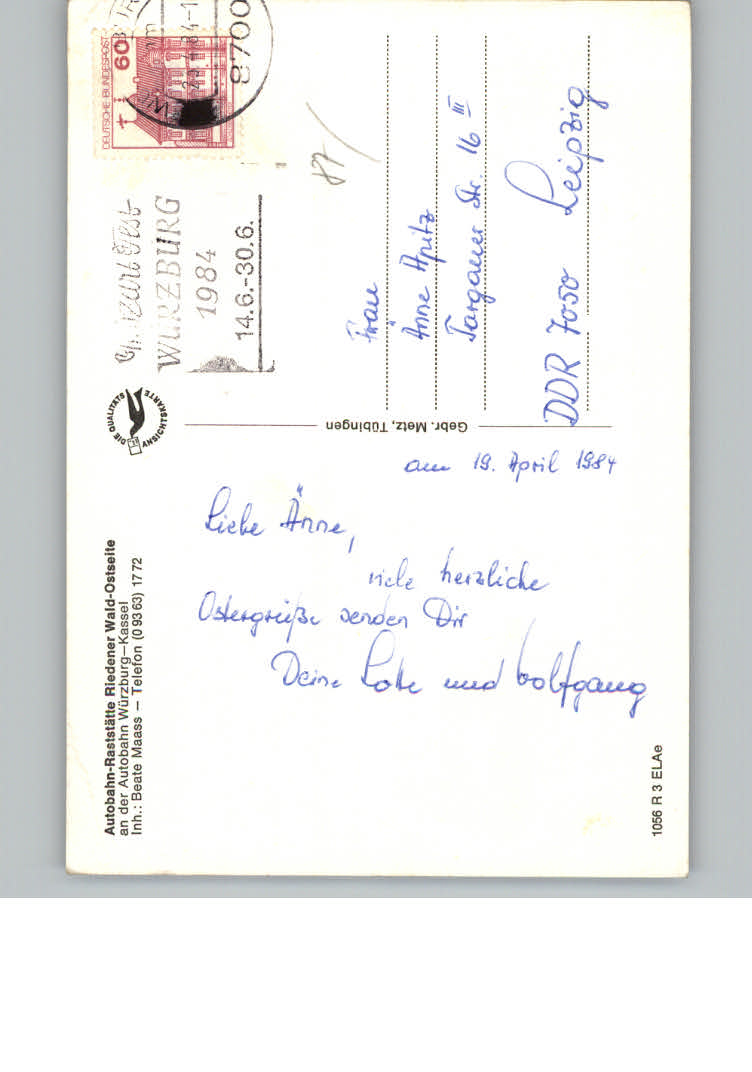 Autobahn-Raststätte Riedener Wald-Ostseite
an der Autobahn Würzburg–Kassel
Inh.: Beate Maass – Telefon (0 93 63) 17 72
DIE QUALITÄTS
ANSICHTSKARTE
am 19. April 1984
Liebe Änne,
viele herzliche
Ostergrüße senden Dir
Deine Lotte und Wolfgang
1056 R 3 ELAe
Gebr. Metz, Tübingen
Mozartfest
WÜRZBURG
1984
14.6.-30.6.
DEUTSCHE BUNDESPOST
60
8700
87/
Frau
Änne Apitz
Torgauer Str. 16 III
DDR 7050 Leipzig